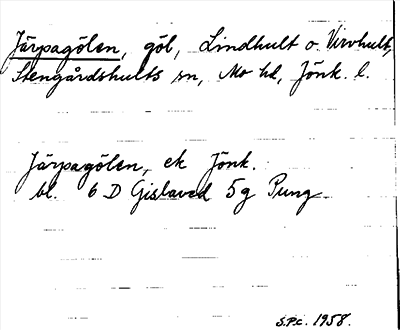 Järpagölen, göl, Lindhult o. Virvhult,
Stengårdshults sn, Mo hd, Jönk. l.
Järpagölen, ek Jönk.
bl. 6 D Gislaved 5 g Pung
S.P.C. 1958.